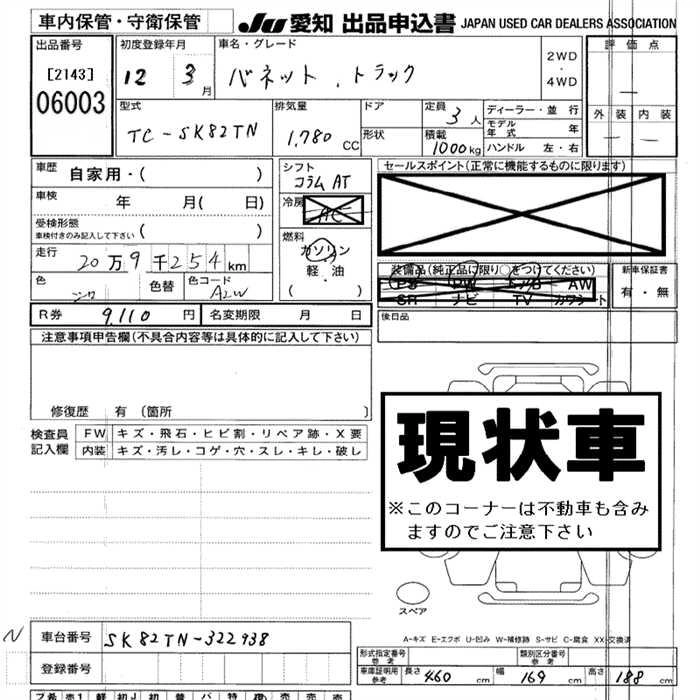 車内保管・守衛保管
JU 愛知 出品申込書 JAPAN USED CAR DEALERS ASSOCIATION
出品番号
[2143]
06003
初度登録年月
12 3月
車名・グレード
バネット . トラック
2WD
・
4WD
評価点
外装 内装
型式
TC-SK82TN
排気量
1,780 CC
ドア
形状
定員
3人
積載
1000kg
ディーラー・並行
モデル年式 年
ハンドル 左・右
車歴
自家用・( )
車検
年 月( 日)
受検形態
車検付きのみ記入して下さい ( )
走行
20万9千254km
色
シロ
色替
色コード
A2W
シフト
コラムAT
冷房
AC
燃料
ガソリン
軽油
( )
セールスポイント(正常に機能するものに限ります)
装備品(純正品に限り○をつけてください)
PS PW エアB AW
SR ナビ TV カワシート
新車保証書
有・無
R券 9,110円
名変期限 月 日
後日品
注意事項申告欄(不具合内容等は具体的に記入して下さい)
修復歴 有 〔箇所 〕
検査員記入欄
FW キズ・飛石・ヒビ割・リペア跡・X要
内装 キズ・汚レ・コゲ・穴・スレ・キレ・破レ
現状車
※このコーナーは不動車も含み
ますのでご注意下さい
スペア
A-キズ E-エクボ U-凹み W-補修跡 S-サビ C-腐食 XX-交換済
N
車台番号 SK82TN-322938
登録番号
形式指定番号 参考
類別区分番号 参考
車庫証明用参考 長さ 460 cm 幅 169 cm 高さ 188 cm